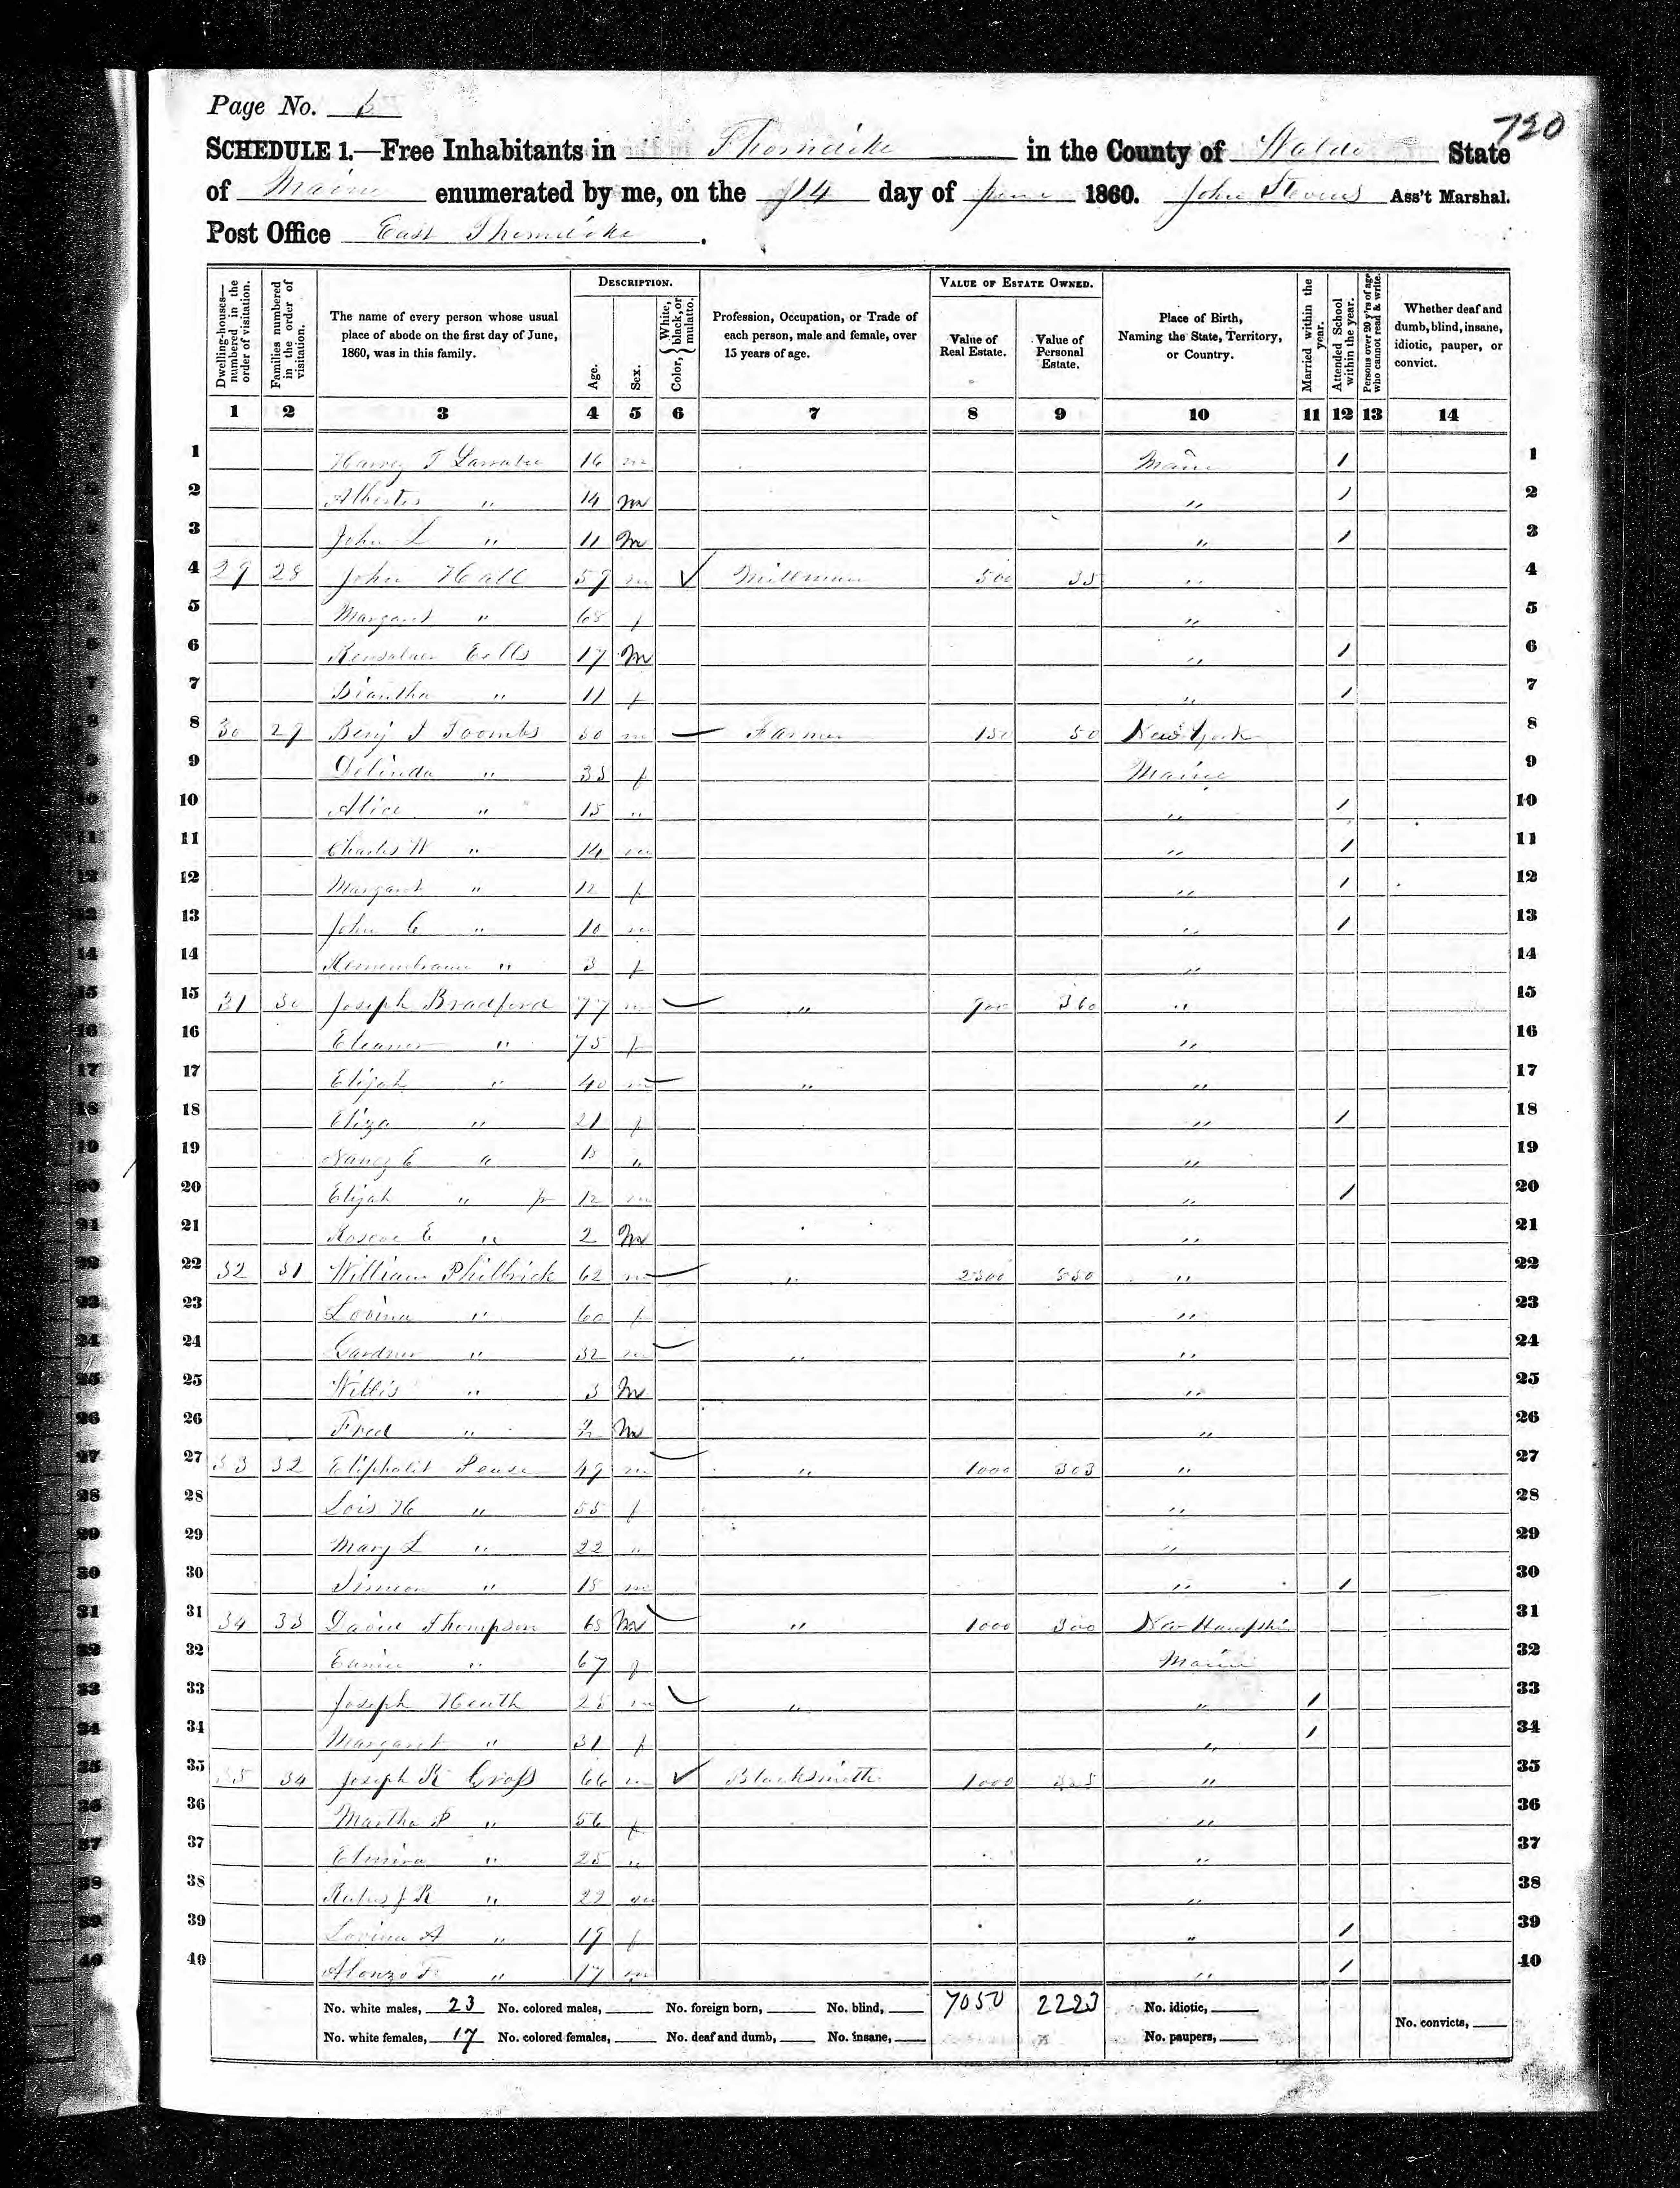 Page No. 6
720
SCHEDULE 1.—Free Inhabitants in Thorndike in the County of Waldo State
of Maine enumerated by me, on the 14 day of June 1860. John Stevens Ass't Marshal.
Post Office East Thorndike.
Dwelling-houses—numbered in the order of visitation.
Families numbered in the order of visitation.
The name of every person whose usual place of abode on the first day of June, 1860, was in this family.
DESCRIPTION.
Age.
Sex.
Color, { White, black, or mulatto.
Profession, Occupation, or Trade of each person, male and female, over 15 years of age.
VALUE OF ESTATE OWNED.
Value of Real Estate.
Value of Personal Estate.
Place of Birth, Naming the State, Territory, or Country.
Married within the year.
Attended School within the year.
Persons over 20 y'rs of age who cannot read & write.
Whether deaf and dumb, blind, insane, idiotic, pauper, or convict.
1 2 3 4 5 6 7 8 9 10 11 12 13 14
1 Harvey T Larrabee 16 m Maine / 1
2 " 14 m " / 2
3 John L " 11 m " / 3
4 29 28 John Hall 59 m ✓ Millman 500 35 " 4
5 Margaret " 68 f " 5
6 Rensalaer Eells 17 m " / 6
7 Diantha " 11 f " / 7
8 30 29 Benj J Toombs 50 m Farmer 150 50 New York 8
9 Delinda " 35 f Maine 9
10 Alice " 15 " " / 10
11 Charles W " 14 m " / 11
12 Margaret " 12 f " / 12
13 John C " 10 m " / 13
14 " 3 f " 14
15 31 30 Joseph Bradford 77 m " 900 360 " 15
16 Eleanor " 75 f " 16
17 Elijah " 40 m " " 17
18 Eliza " 21 f " / 18
19 Nancy E " " " 19
20 Elijah " Jr 12 m " / 20
21 Roscoe E " 2 m " 21
22 32 31 William Philbrick 62 m " 2500 550 " 22
23 Lovina " 60 f " 23
24 Gardner " 32 m " " 24
25 Willis " 3 m " 25
26 Fred " m " 26
27 33 32 Eliphalet Pease 49 m " 1000 303 " 27
28 Lois H " 55 f " 28
29 Mary L " 22 " " 29
30 Simeon " 15 m " / 30
31 34 33 David Thompson 65 m " 1000 300 New Hampshire 31
32 Eunice " 67 f Maine 32
33 Joseph Heath 25 m " " / 33
34 Margaret " 31 f " / 34
35 35 34 Joseph R Cross 66 m ✓ Blacksmith 1000 " 35
36 Martha P " 56 f " 36
37 Elmira " 25 " " 37
38 Rufus J R " 22 m " 38
39 Lovina A " 19 f " / 39
40 Alonzo F " 17 m " / 40
No. white males, 23 No. colored males, No. foreign born, No. blind, 7050 2223 No. idiotic,
No. white females, 17 No. colored females, No. deaf and dumb, No. insane, No. paupers, No. convicts,